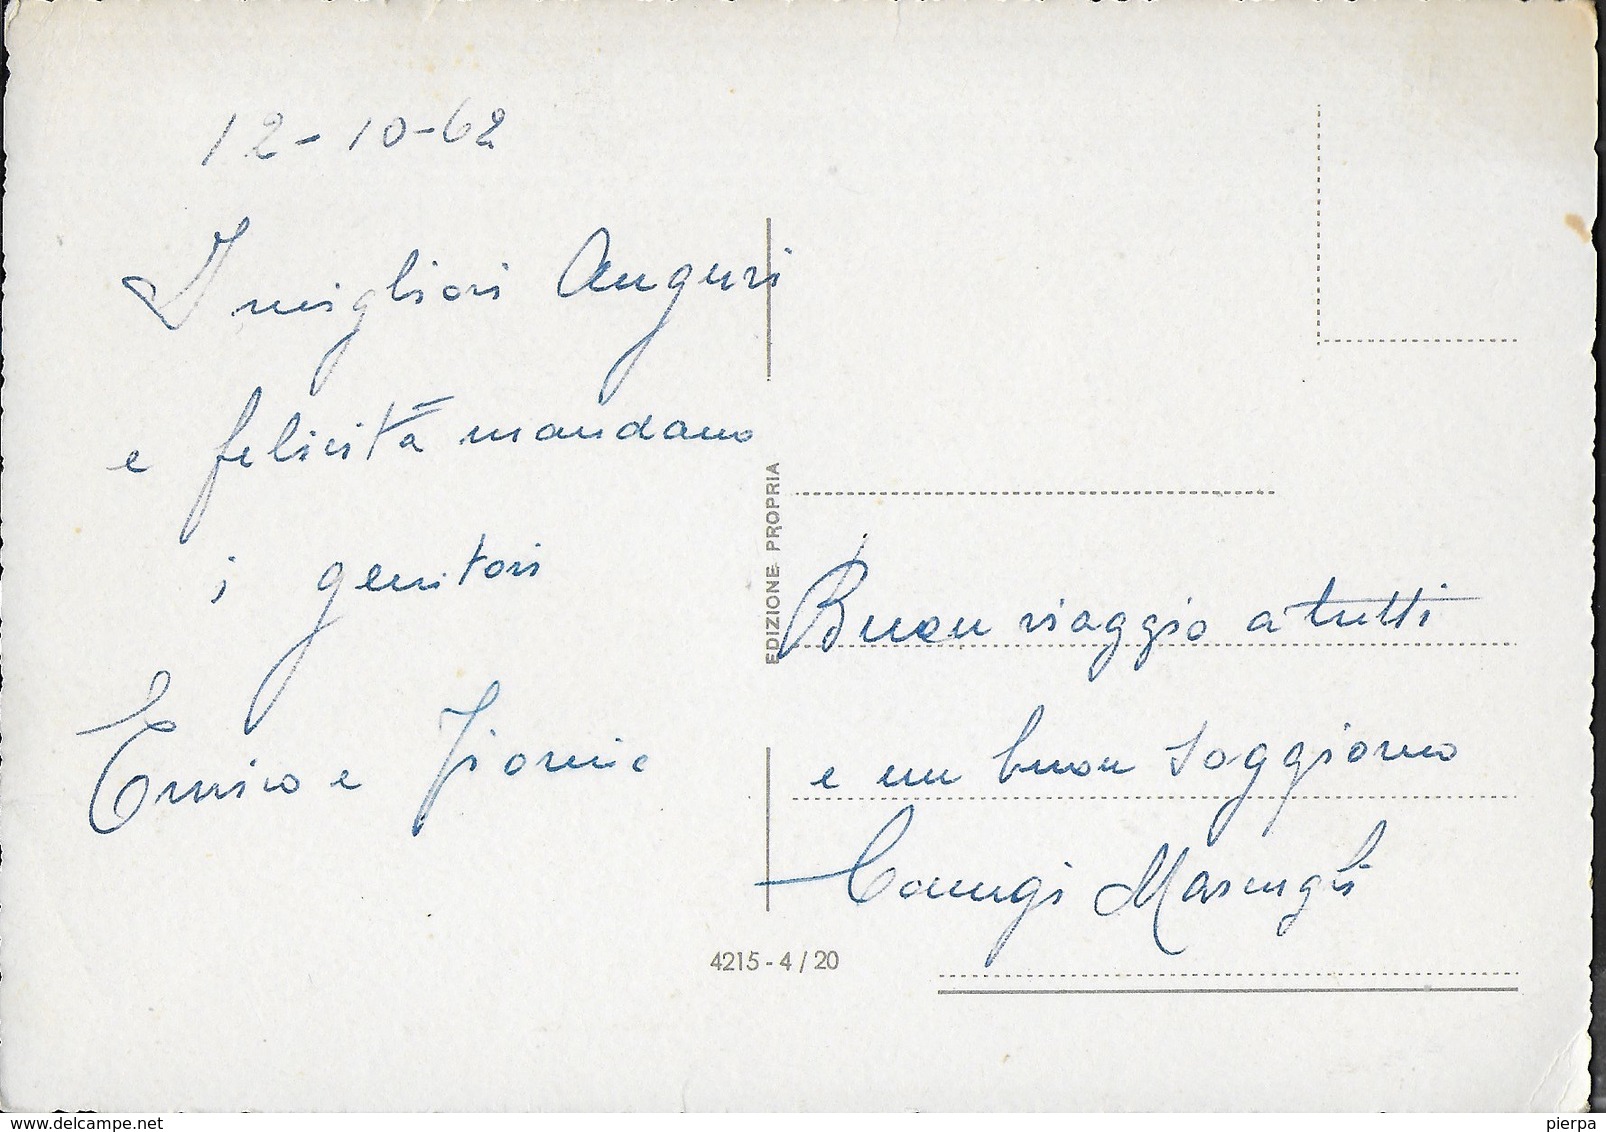 12-10-62
I migliori Auguri
e felicità mandano
i genitori
Enrico e
EDIZIONE PROPRIA
Buon viaggio a tutti
e un buon soggiorno
4215 - 4 / 20
www.delcampe.net
pierpa